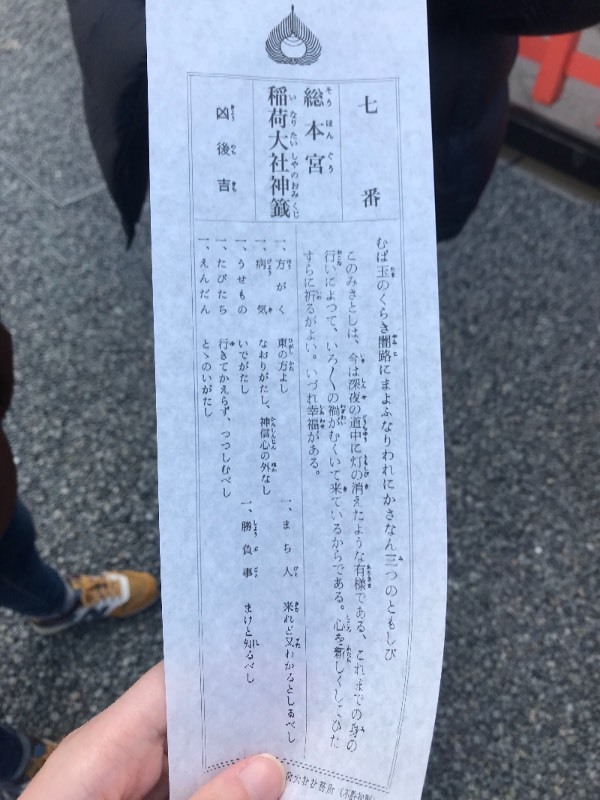 七番
総本宮
稲荷大社神籤
凶後吉
むば玉のくらき闇路にまよふなりわれにかさなん三つのともしび
このみさとしは、今は深夜の道中に灯の消えたような有様である、これまでの身の
行いによつて、いろ〱の禍がむくいて来ているからである。心を新しくしてひた
すらに祈るがよい。いづれ幸福がある。
一、方がく 東の方よし
一、病気 なおりがたし、神信心の外なし
一、うせもの いでがたし
一、たびたち 行きてかえらず、つつしむべし
一、えんだん とゝのいがたし
一、まち人 来れど又わかるとしるべし
一、勝負事 まけと知るべし
大社社務所(不許複製)